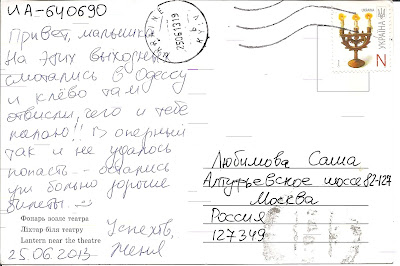 UA-640690
Привет, малышка
На этих выходных
смотались в Одессу
и клёво там
отвисли, чего и тебе
желаю!! В оперный
так и не удалось
попасть - остались
уж больно дорогие
билеты.
Успехов,
Женя
Фонарь возле театра
Ліхтар біля театру
Lantern near the theatre
25.06.2013
УКРАЇНА
N
Любимова Саша
Алтуфьевское шоссе 82-127
Москва
Россия
127349